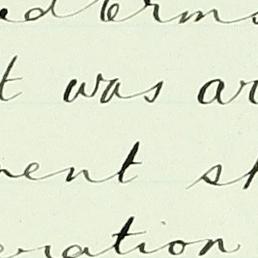 ed terms
t was ar
ment st
eration